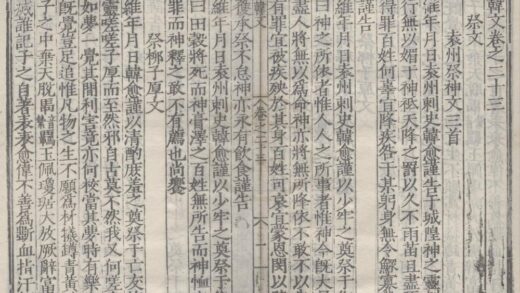 韓文卷之二十三
祭文
袁州祭神文三首
維年月日袁州刺史韓愈謹告于城隍神之靈
行無以媚于神祗天降之罰以久不雨苗且盡
得罪百姓何辜宜降疾咎于某躬身無令鰥寡
謹告
維年月日袁州刺史韓愈謹以少牢之奠祭
曰神之所依者惟人人之所事者惟神今既大
盡人將無以為命神亦將無所降依不敢不以
有罪宜被疾殃於其身百姓可哀宜蒙恩閔以
獲承祭不怠神亦永有飲食謹告
韓文 卷之二十三 二
維年月日袁州刺史韓愈謹以少牢之奠祭于
曰田穀將死而神膏澤之百姓無所告而神恤
罪而神釋之敢不有薦也尚饗
祭柳子厚文
維年月日韓愈謹以清酌庶羞之奠祭于亡友
靈嗟嗟子厚而至然邪自古莫不然我又何嗟
如夢一覺其間利害竟亦何校當其夢時有樂
既覺豈足追惟凡物之生不願為材犧罇青黃
子之中棄天脫馽羈玉佩瓊琚大放厥辭富
滅誰記子之自著表表愈偉不善為斵血指汗